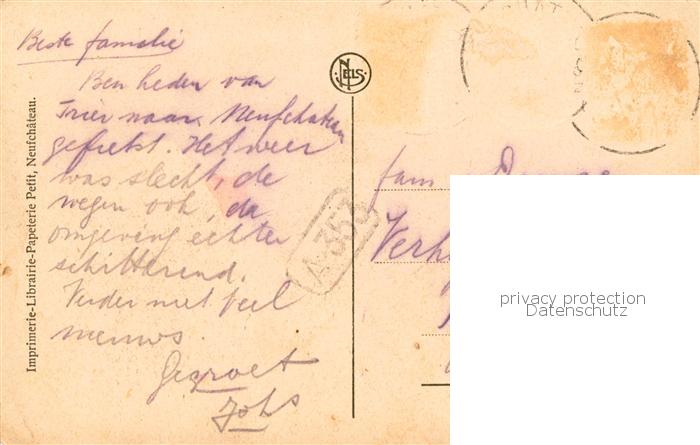 Beste familie
Ben heden van
Trier naar Neufchateau
gefietst. Het weer
was slecht, de
wegen ook, de
omgeving echter
schitterend.
Verder niet veel
nieuws.
Gegroet
Johs
Imprimerie-Librairie-Papeterie Petit, Neufchâteau.
NELS
A363
fam
privacy protection
Datenschutz